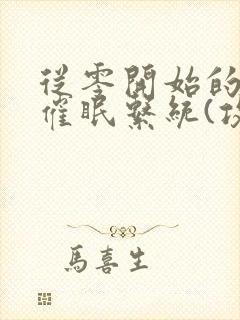 從零開始的
催眠系統(
馬喜生